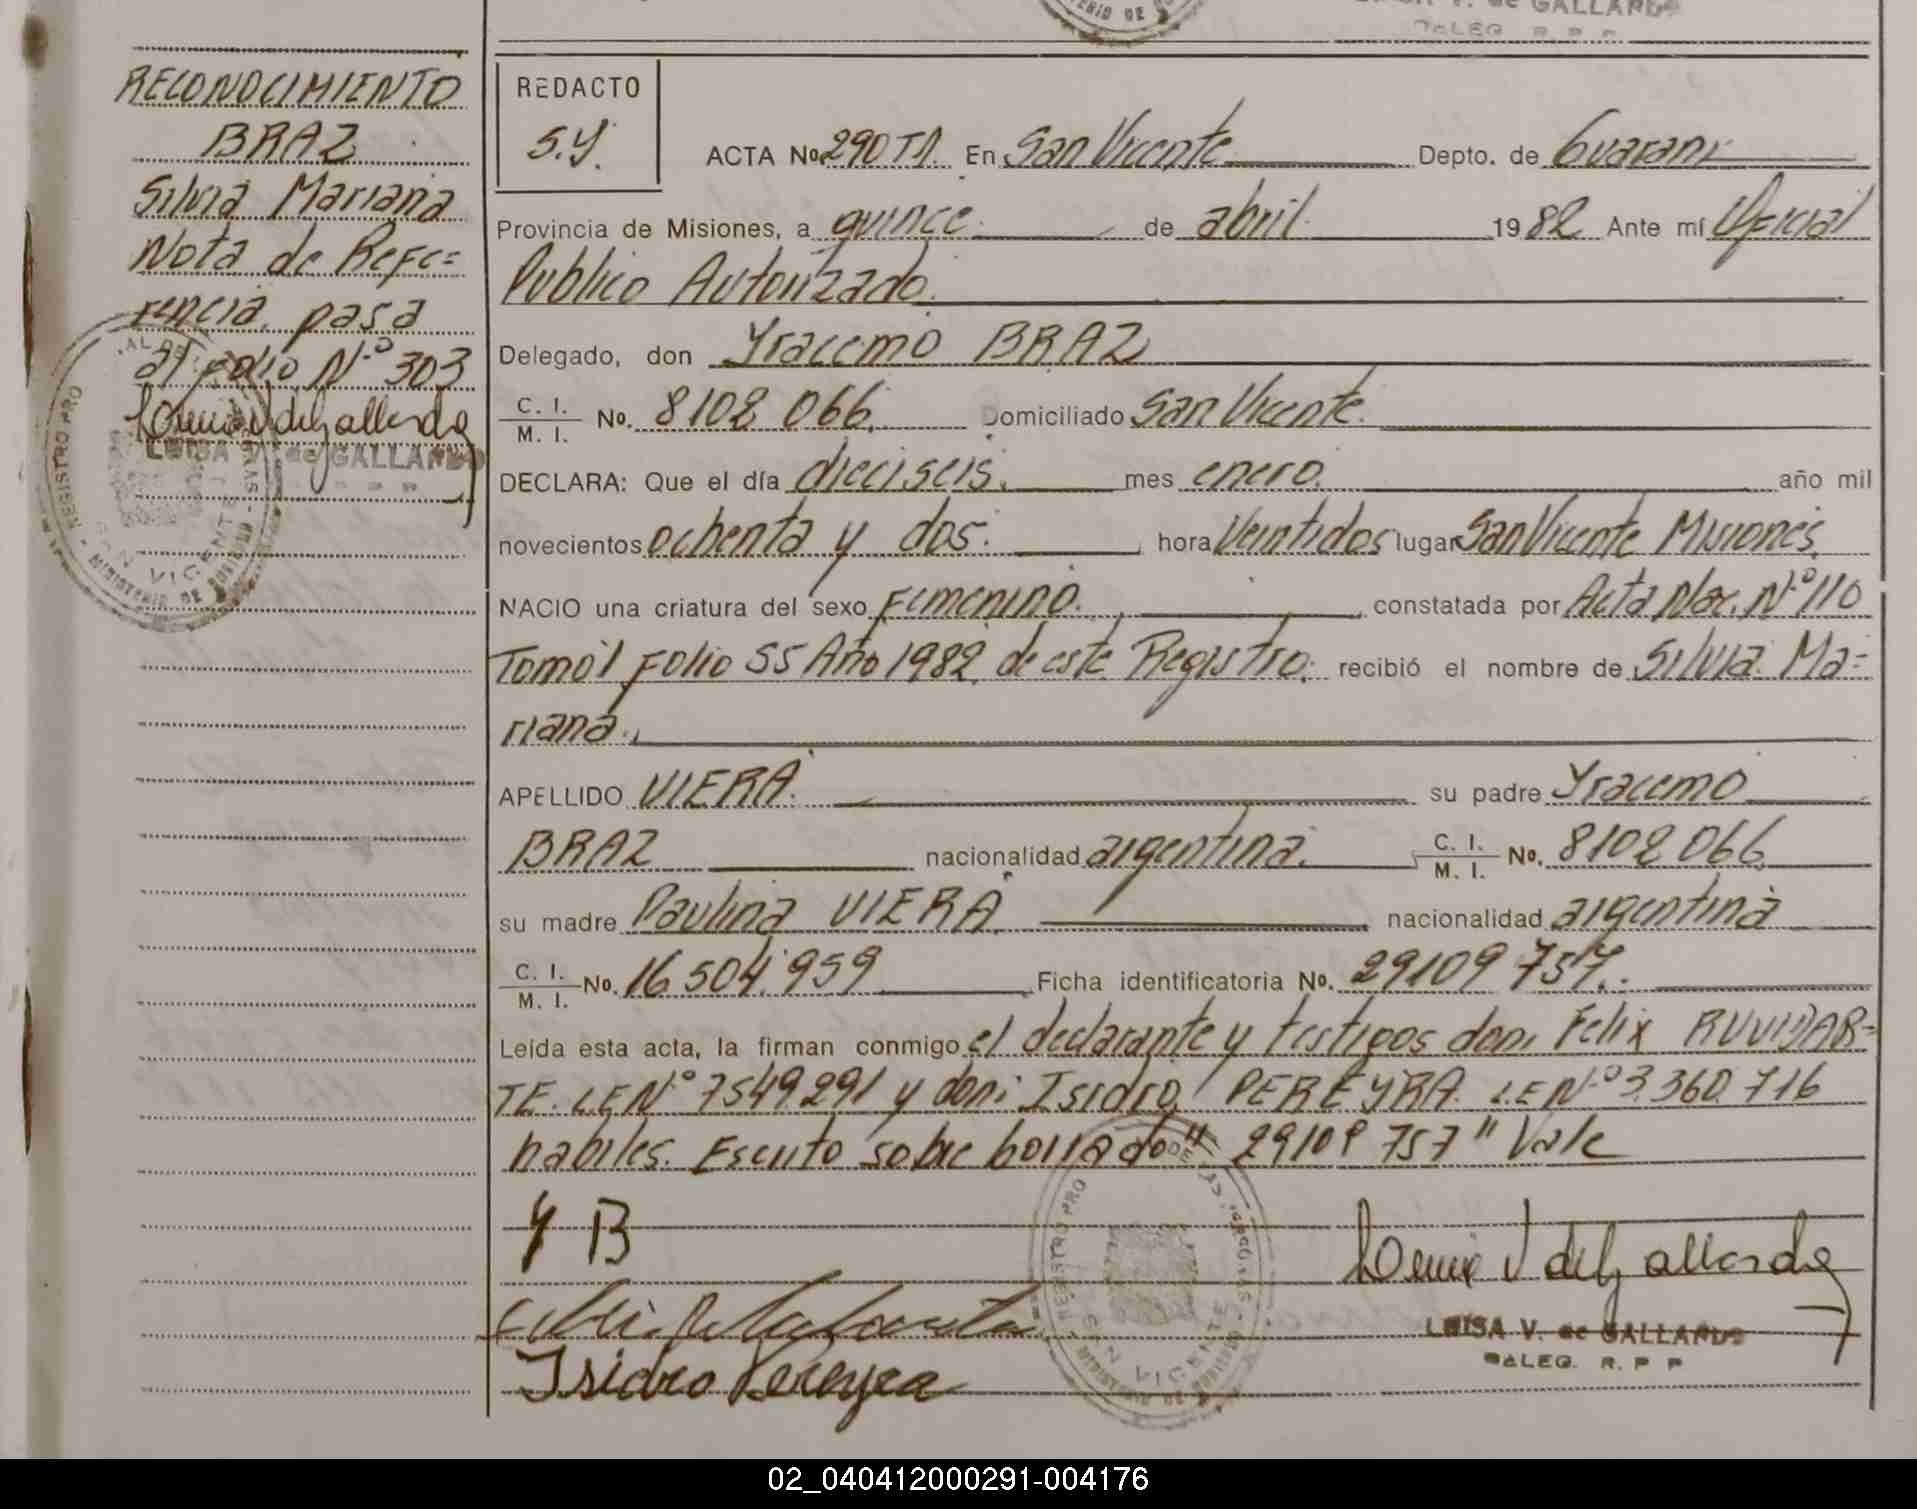 RECONOCIMIENTO
BRAZ
Silvia Mariana
Nota de Refe=
rencia pasa
al Folio N.º 303
LUISA V. de GALLARDO
REDACTO
S.Y.
ACTA No. 290 T1. En San Vicente Depto. de Guarani
Provincia de Misiones, a quince de abril. 1982 Ante mí Oficial
Publico Autorizado.
Delegado, don Yracemo BRAZ
C. I. / M. I. No. 8102 066. Domiciliado San Vicente.
DECLARA: Que el día dieciseis. mes enero. año mil
novecientos ochenta y dos. hora Veintidos lugar San Vicente Misiones.
NACIO una criatura del sexo Femenino. constatada por Acta Nac. N.º 110
Tomo 1 Folio 55 Año 1982 de este Registro. recibió el nombre de Silvia Ma=
riana.
APELLIDO VIERA. su padre Yracemo
BRAZ nacionalidad argentina. C. I. / M. I. No. 8102 066
su madre Paulina VIERA nacionalidad argentina
C. I. / M. I. No. 16 504.959 Ficha identificatoria No. 29109 757.
Leída esta acta, la firman conmigo el declarante y testigos don: Felix RUVIDAR=
TE. LE Nº 7549291 y don: Isidro PEREYRA L.E N.º 3.360.716
habiles. Escrito sobre borrado" 29109 757 " Vale
Y B
LUISA V. de GALLARDO
DALEG. R. P P
Isidro Pereyra
REGISTRO PRO
SAN VICENTE
02_040412000291-004176